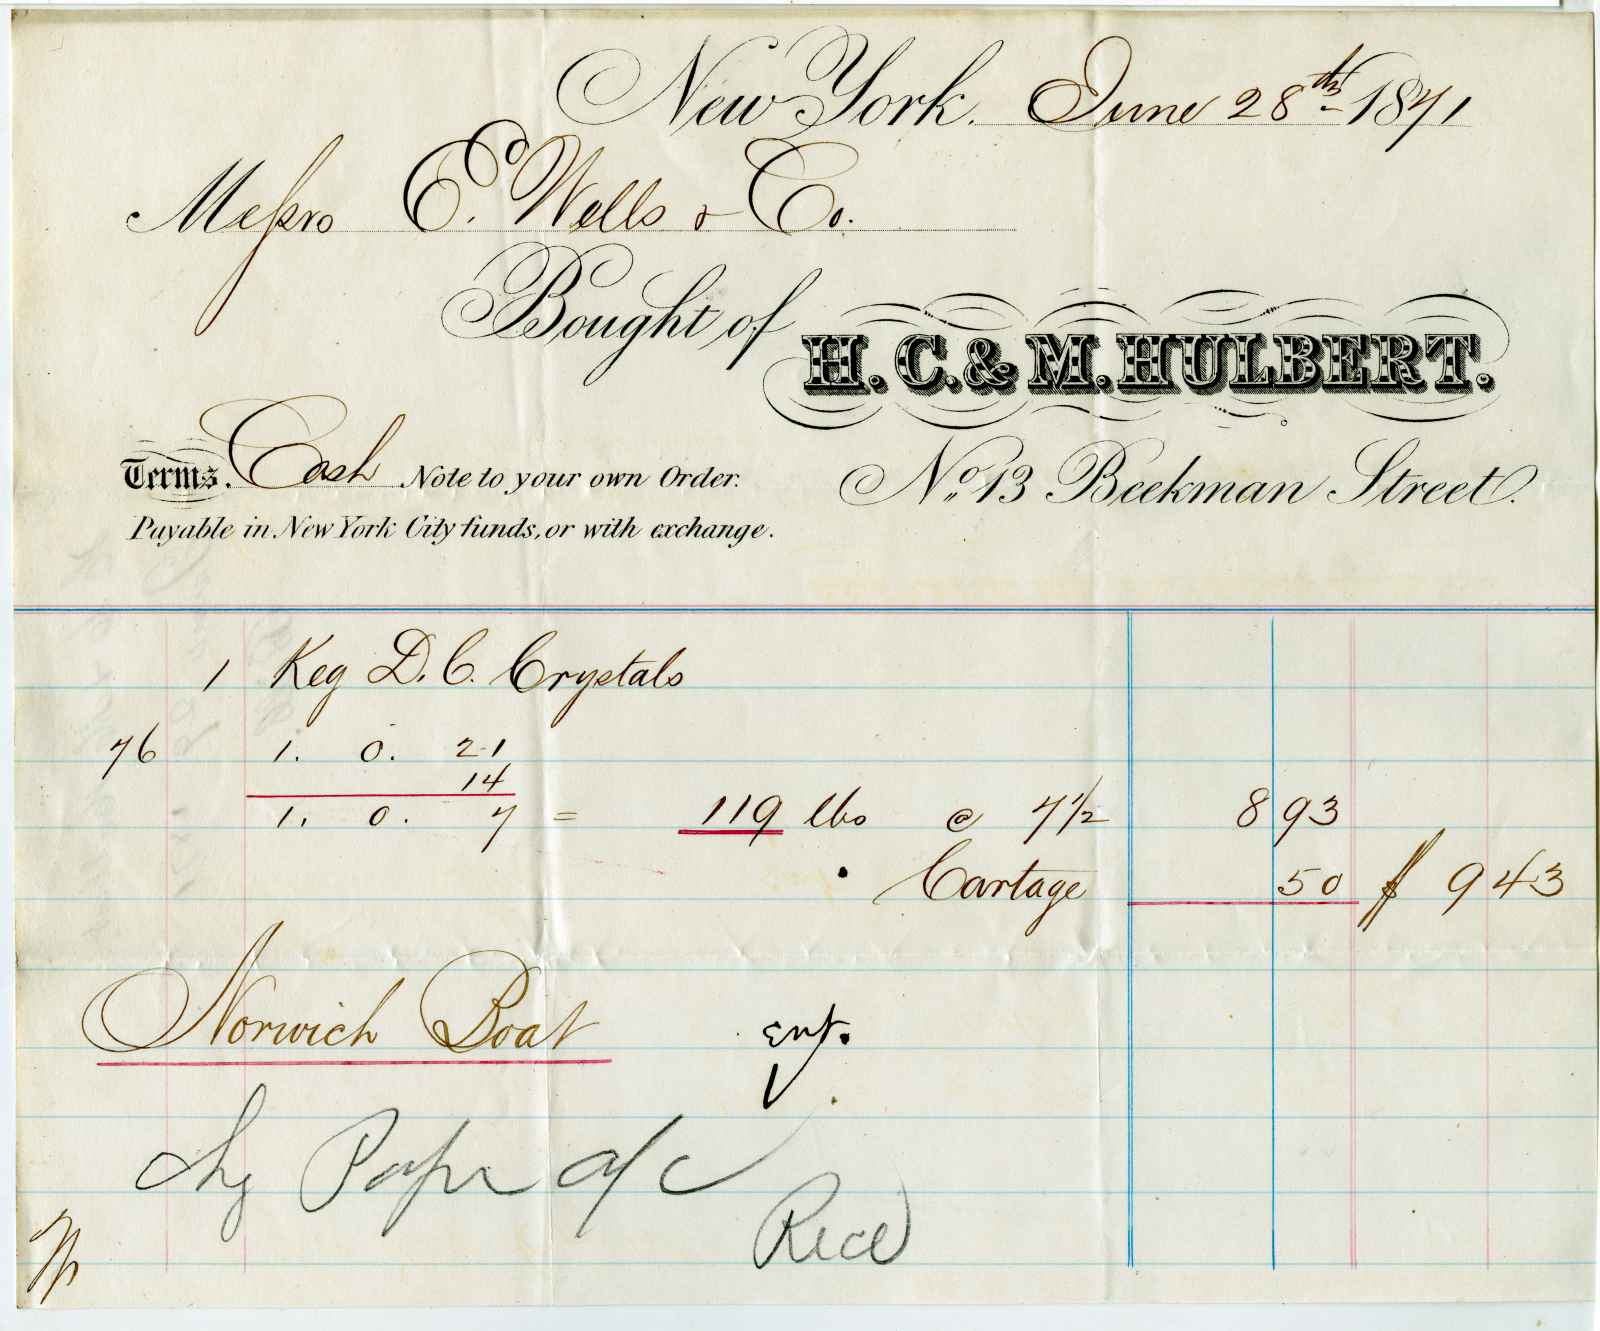 New York. June 28th 1871
Messrs E. Wells & Co.
Bought of H. C. & M. HULBERT.
Terms. Cash Note to your own Order. No. 13 Beekman Street.
Payable in New York City funds, or with exchange.
1 Keg D. C. Crystals
76 1. 0. 21
14
1. 0. 7 = 119 lbs @ 7 1/2 8 93
Cartage 50 $ 9 43
Norwich Boat ent.
Chg Paper a/c
Recd